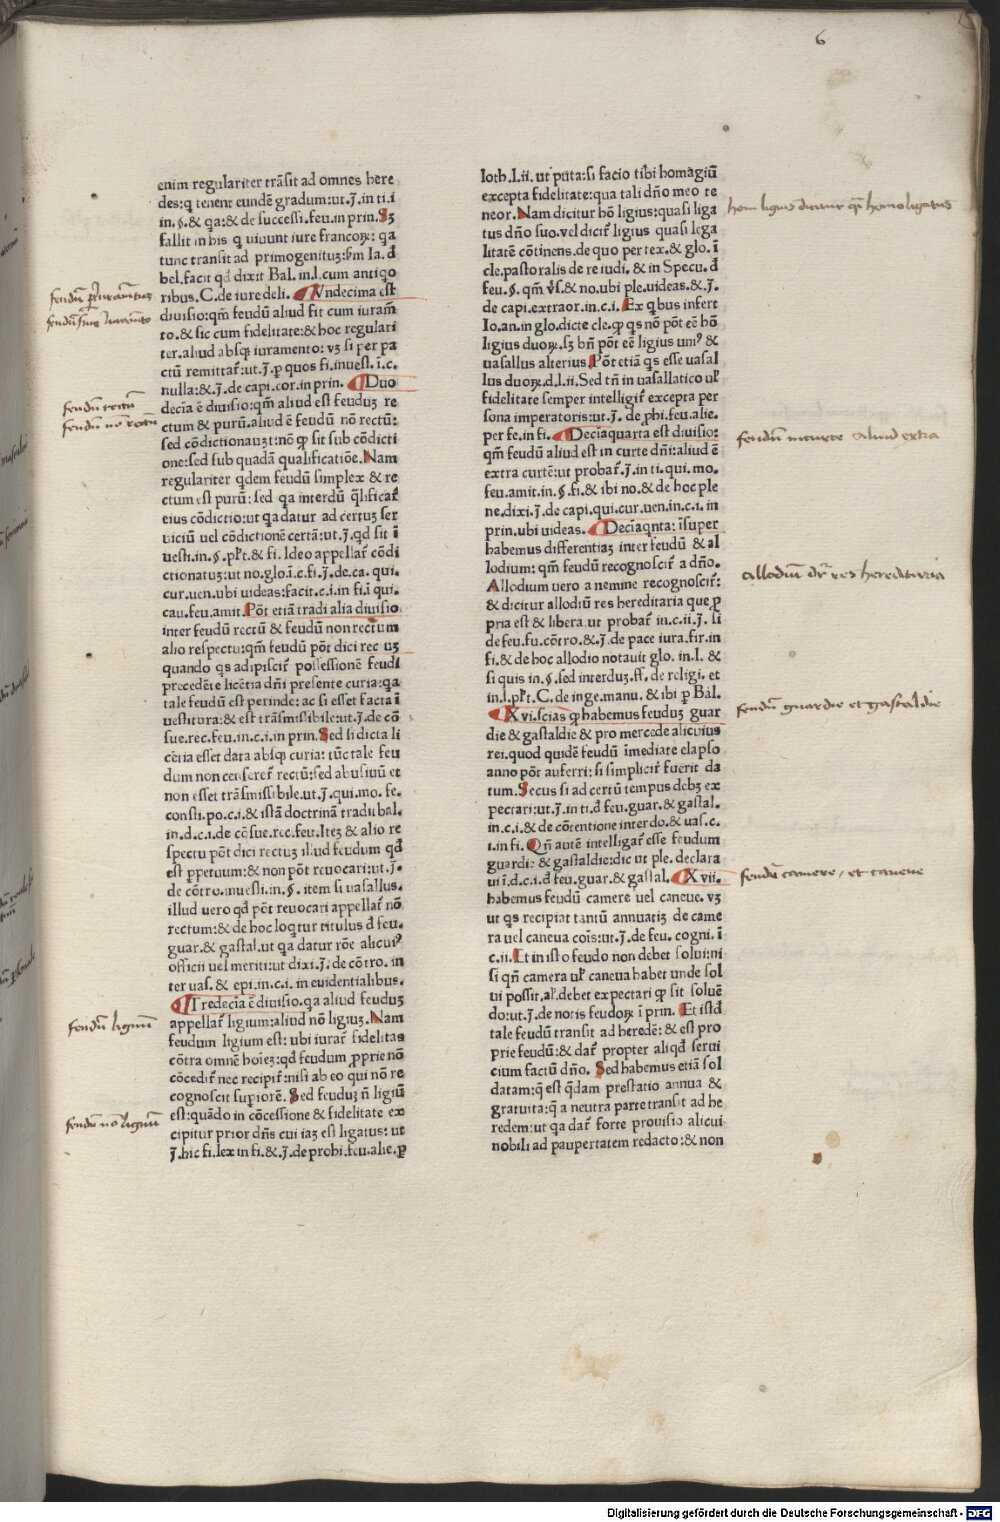 6
enim regulariter trāsit ad omnes here
des:q tenent eundē gradum:ut.J.in ti.i
in.§.& qa:& de successi.feu.in prin.Sꝫ
fallit in his q uiuunt iure francoꝝ: qa
tunc transit ad primogenituꝫ:ẜm Ia.đ
bel.facit qđ dixit Bal.in.l.cum antiqo
ribus.C.de iure deli. Vndecima est
diuisio:qm̄ feudū aliud fit cum iuram̄
to.& sic cum fidelitate:& hoc regulari
ter.aliud absqꝫ iuramento: vꝫ si per pa
ctū remittat᷑:ut.J.p quos fi.inuest.ī.c.
nulla:&.J.de capi.cor.in prin. Duo
decīa ē diuisio:qm̄ aliud est feuduꝫ re
ctum & purū.aliud ē feudū nō rectū:
sed cōdictionauꝫt:nō ꝙ sit sub cōdicti
one:sed sub quadā qualificatiōe.Nam
regulariter qdem feudū simplex & re
ctum est purū: sed qa interdū q̄lificat᷑
eius cōdictio:ut qa datur ad certuꝫ ser
uiciū uel cōdictionē certā:ut.J.qđ sit ī
uesti.in.§.pl̄t.& fi. Ideo appellat᷑ cōdi
ctionatuꝫ:ut no.glo.ī.c.fi.J.de.ca. qui.
cur.uen.ubi uideas:facit.c.i.in fi.ī qui.
cau.feu.amit.Pōt etiā tradi alia diuisio
inter feudū rectū & feudū non rectum
alio respectu:qm̄ feudū pōt dici rec uꝫ
quando qs adipiscit᷑ possessionē feudi
precedēte licētia dn̄i presente curia:qa
tale feudū est perinde: ac si esset facta ī
uestitura:& est trāsmissibile:ut.J.de cō
sue.rec.feu.in c.i.in prin.Sed si dicta li
cētia esset data absqꝫ curia: tūc tale feu
dum non censeret᷑ rectū:sed abusiuū et
non esset trāsmissibile.ut.J.qui.mo.fe.
consti.po.c.i.& istā doctrinā tradit bal.
in.d.c.i.de cēsue.rec.feu.Iteꝫ & alio re
spectu pōt dici rectuꝫ illud feudum qđ
est ꝑpetuum:& non pōt reuocari:ut.J.
de cōtro.inuesti.in.§.item si uasallus.
illud uero qđ pōt reuocari appellat᷑ nō
rectum:& de hoc loqtur titulus đ feu.
guar.& gastal.ut qa datur rōe alicuiꝰ
officii uel meriti:ut dixi.J.de cōtro.in
ter uas.& epi.in c.i.in euidentialibus.
Tredecīa ē diuisio.qa aliud feuduꝫ
appellat᷑ ligium:aliud nō ligiuꝫ.Nam
feudum ligium est: ubi iurat᷑ fidelitas
cōtra omnē hoīeꝫ:qđ feudum ꝓprie nō
cōcedit᷑ nec recipit᷑:nisi ab eo qui nō re
cognoscit supiorē.Sed feuduꝫ n̄ ligiū
est:quādo in cōcessione & fidelitate ex
cipitur prior dn̄s cui iaꝫ est ligatus: ut
J.hic fi.lex in fi.&.J.de prohi.feu.alie.ꝑ
loth.l.ii. ut puta:si facio tibi homagiū
excepta fidelitate:qua tali dn̄o meo te
neor.Nam dicitur hō ligius:quasi liga
tus dn̄o suo.vel dicit᷑ ligius quasi lega
litatē cōtinens.de quo per tex.& glo.ī
cle.pastoralis de re iudi. & in Specu.đ
feu.§.qm̄ v̄s.& no.ubi ple.uideas.&.J.
de capi.extraor.in.c.i.Ex qbus infert
Io.an.in glo.dicte cle.ꝙ qs nō pōt eē hō
ligius duoꝝ.sꝫ bn̄ pōt eē ligius uniꝰ &
uasallus alterius.Pōt etiā qs esse uasal
lus duoꝝ.d.l.ii.Sed tn̄ in uasallatico ul̄
fidelitate semper intelligit᷑ excepta per
sona imperatoris:ut.J. de ꝓhi.feu.alie.
per fe.in fi. Decīaquarta est diuisio:
qm̄ feudū aliud est in curte dn̄i:aliud ē
extra curtē:ut probat᷑.J.in ti.qui.mo.
feu.amit.in.§.fi.& ibi no.& de hoc ple
ne.dixi.J.de capi.qui.cur.uen.in.c.i.in
prin.ubi uideas. Decīaqnta: īsuper
habemus differentiaꝫ inter feudū & al
lodium: qm̄ feudū recognoscit᷑ a dn̄o.
Allodium uero a nemine recognoscit᷑:
& dicitur allodiū res hereditaria que ꝓ
pria est & libera.ut probat᷑ in.c.ii.J. si
de feu.fu.cōtro.&.J.de pace iura.fir.in
fi.& de hoc allodio notauit glo. in.l. &
si quis in.§.sed interduꝫ.ff.de religi.et
in.l.pl̄t.C.de inge.manu.& ibi ꝑ Bal.
Xvi.scias ꝙ habemus feuduꝫ guar
die & gastaldie & pro mercede alicuius
rei.quod quidē feudū īmediate elapso
anno pōt auferri: si simplicit᷑ fuerit da
tum.Secus si ad certū tempus debꝫ ex
pectari:ut.J.in ti.đ feu.guar.& gastal.
in.c.i.& de cōtentione inter do.& uas.c.
i.in fi. Qn̄ autē intelligat᷑ esse feudum
guardie & gastaldie:dic ut ple. declara
ui ī.d.c.i.đ feu.guar.& gastal. Xvii.
habemus feudū camere uel caneue. vꝫ
ut qs recipiat tantū annuatiꝫ de came
ra uel caneua cōis:ut.J.de feu. cogni. ī
c.ii.Et in isto feudo non debet solui:ni
si qn̄ camera ul̄ caneua habet unde sol
ui possit.al̄.debet expectari ꝙ sit soluē
do:ut.J.de notis feudoꝝ ī prin. Et istđ
tale feudū transit ad heredē: & est pro
prie feudū:& dat᷑ propter aliqđ serui
cium factū dn̄o. Sed habemus etiā sol
datam:q̄ est q̄dam prestatio annua &
gratuita:q̄ a neutra parte transit ad he
redem:ut qa dat᷑ forte prouisio alicui
nobili ad paupertatem redacto:& non
feudū rectū
feudū nō rectū
feudū ligium
feudū nō ligium
homo ligius dicitur quasi homo ligatus
feudū in curte aliud extra
Allodiū dr̄ res hereditaria
feudū guardie et gastaldie
feudū camere, et caneue
Digitalisierung gefördert durch die Deutsche Forschungsgemeinschaft - DFG